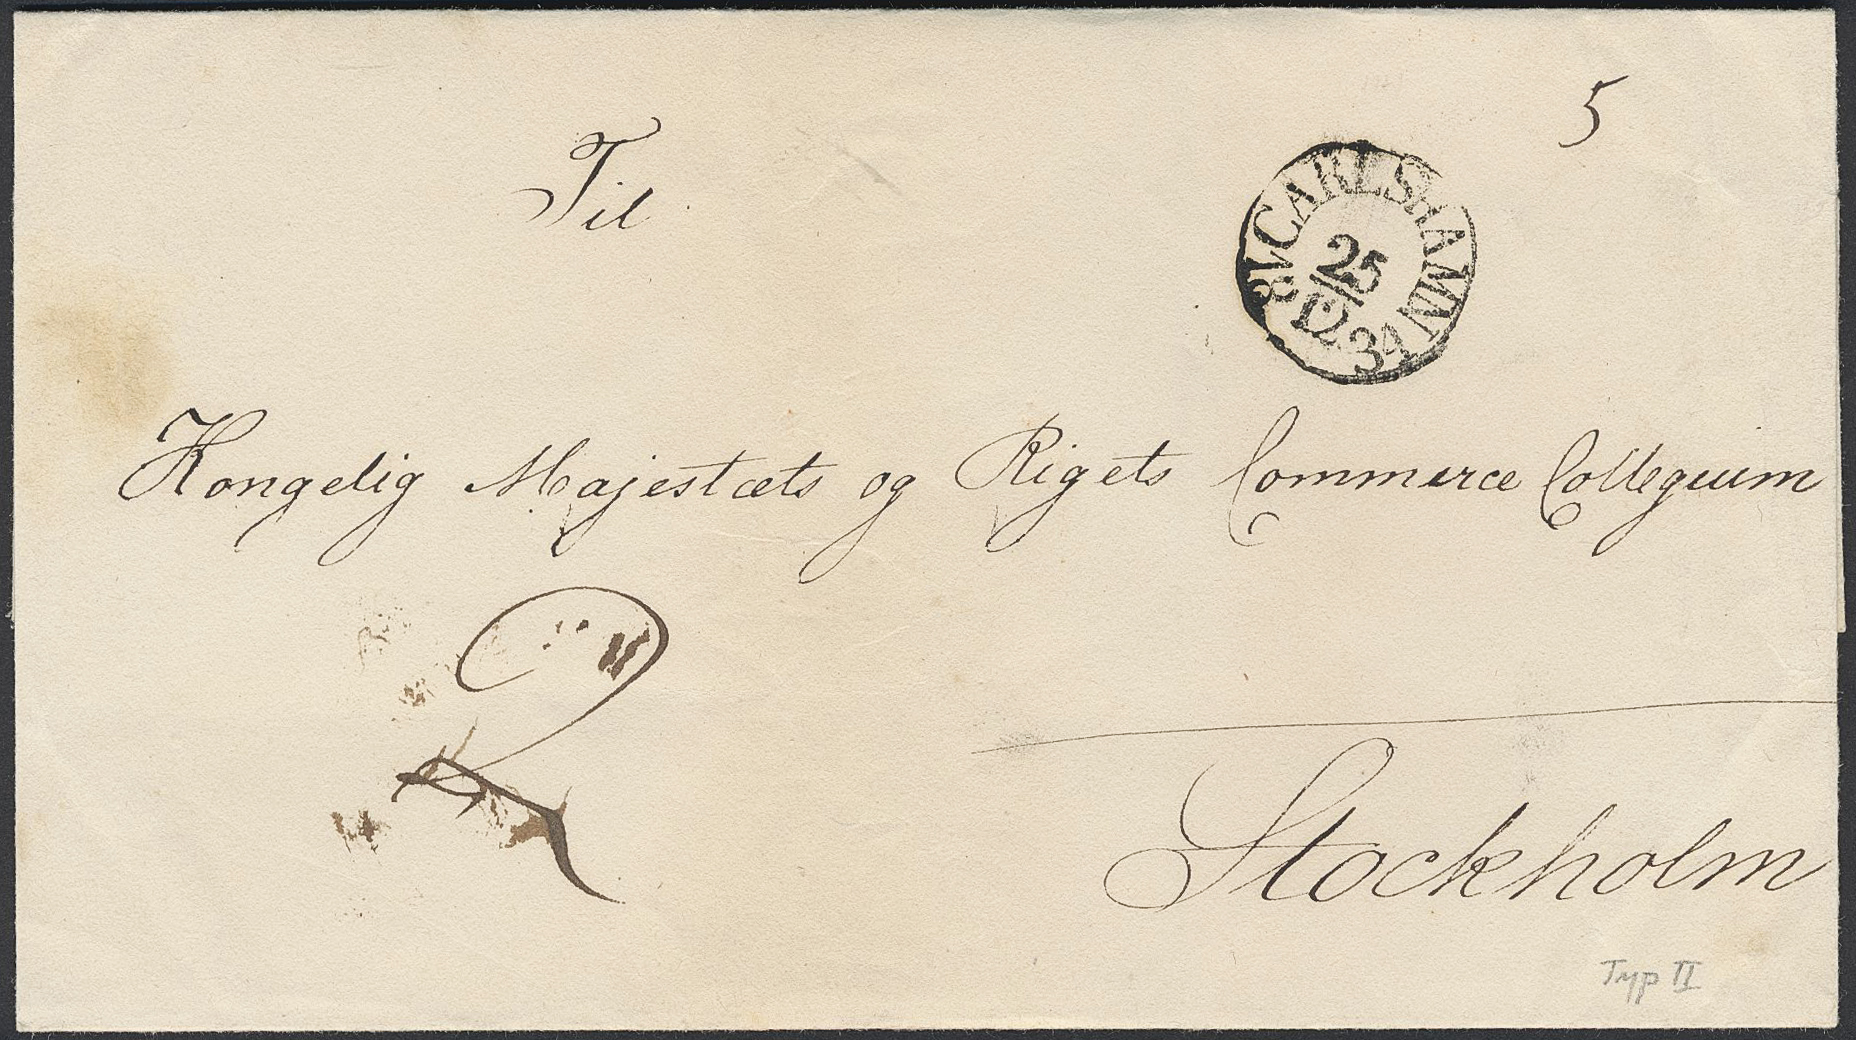 5
Til
CARLSHAMN
25
12
1834
Kongelig Majestæts og Rigets Commerce Collegium
2
Stockholm
Typ II